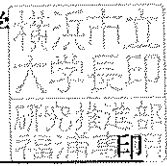 横浜市立
大学長印
研究推進部
福浦専用
印